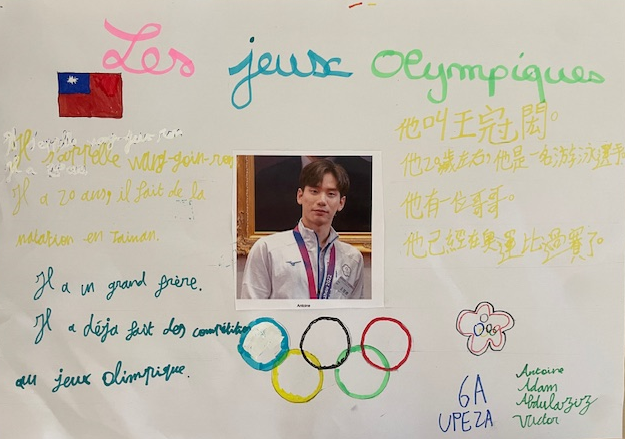 Les jeux Olympiques
Il s'appelle wang-goin-ren
Il a 20 ans, il fait de la
natation en Taiwan.
Il a un grand frère.
Il a déja fait des compétition
au jeux olimpique.
他叫王冠閎。
他20歲左右，他是一名游泳選手
他有一位哥哥。
他已經在奧運比過賽了。
Antoine
6A
UPEZA
Antoine
Adam
Abdulaziz
Victor